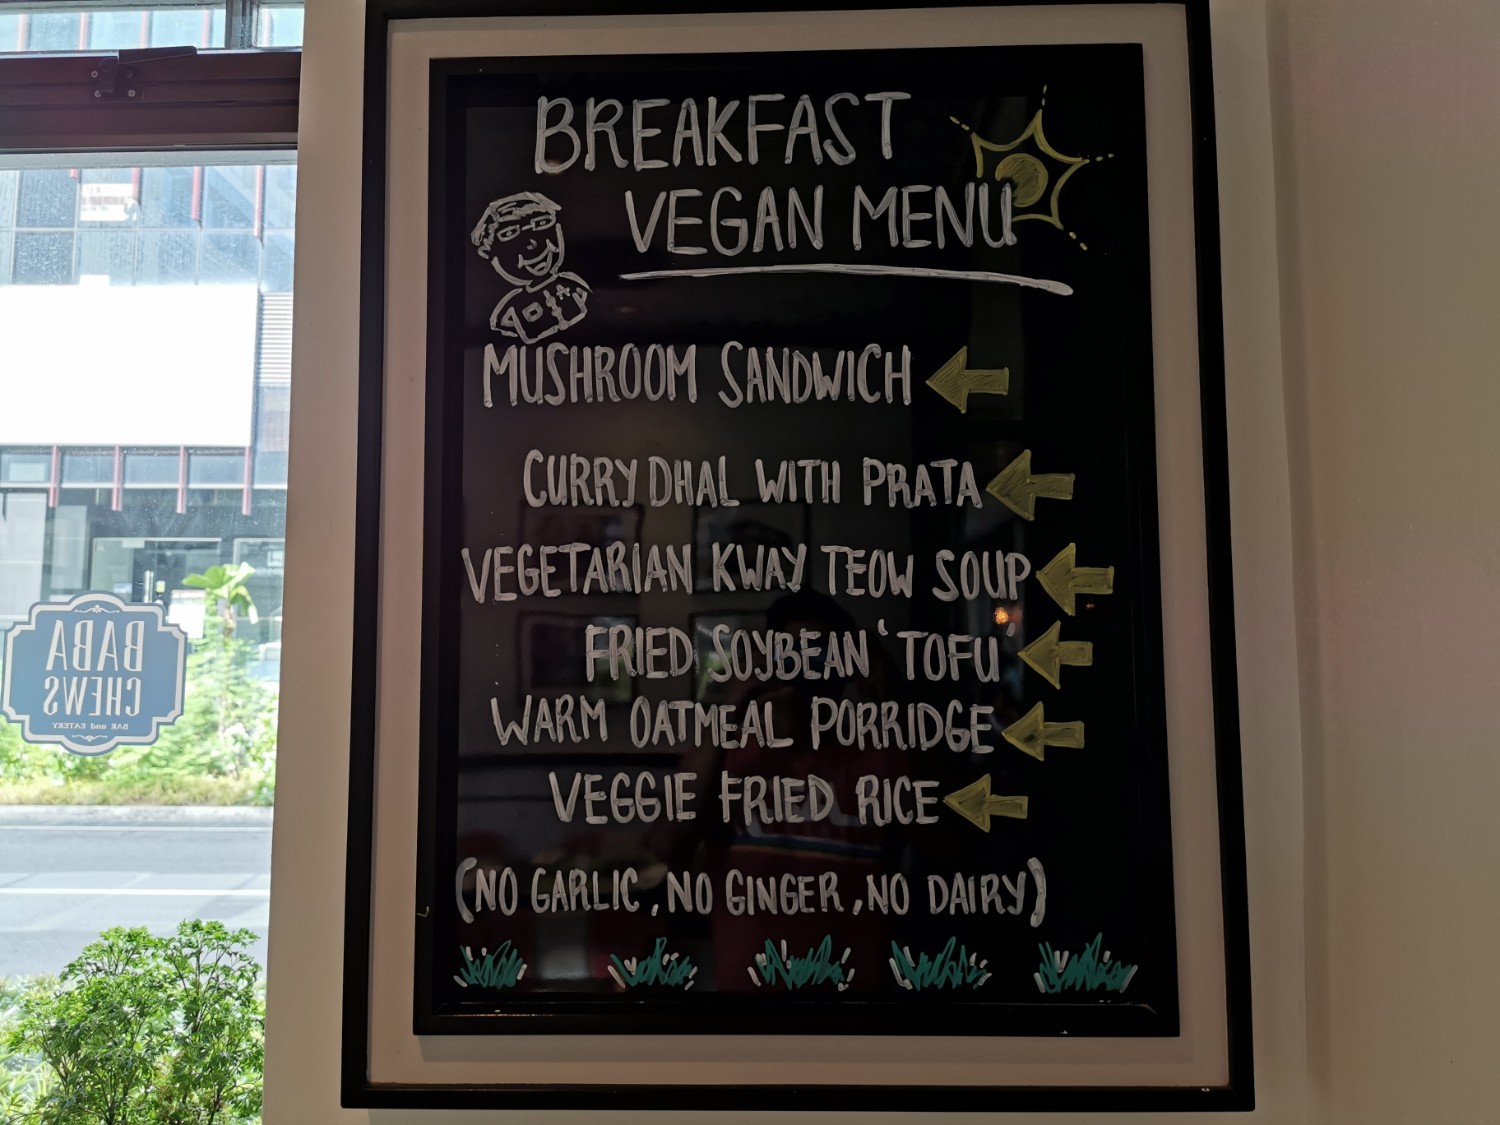 BREAKFAST
VEGAN MENU
MUSHROOM SANDWICH
CURRY DHAL WITH PRATA
VEGETARIAN KWAY TEOW SOUP
FRIED SOYBEAN 'TOFU'
WARM OATMEAL PORRIDGE
VEGGIE FRIED RICE
(NO GARLIC, NO GINGER, NO DAIRY)
BABA
CHEWS
BAR and EATERY